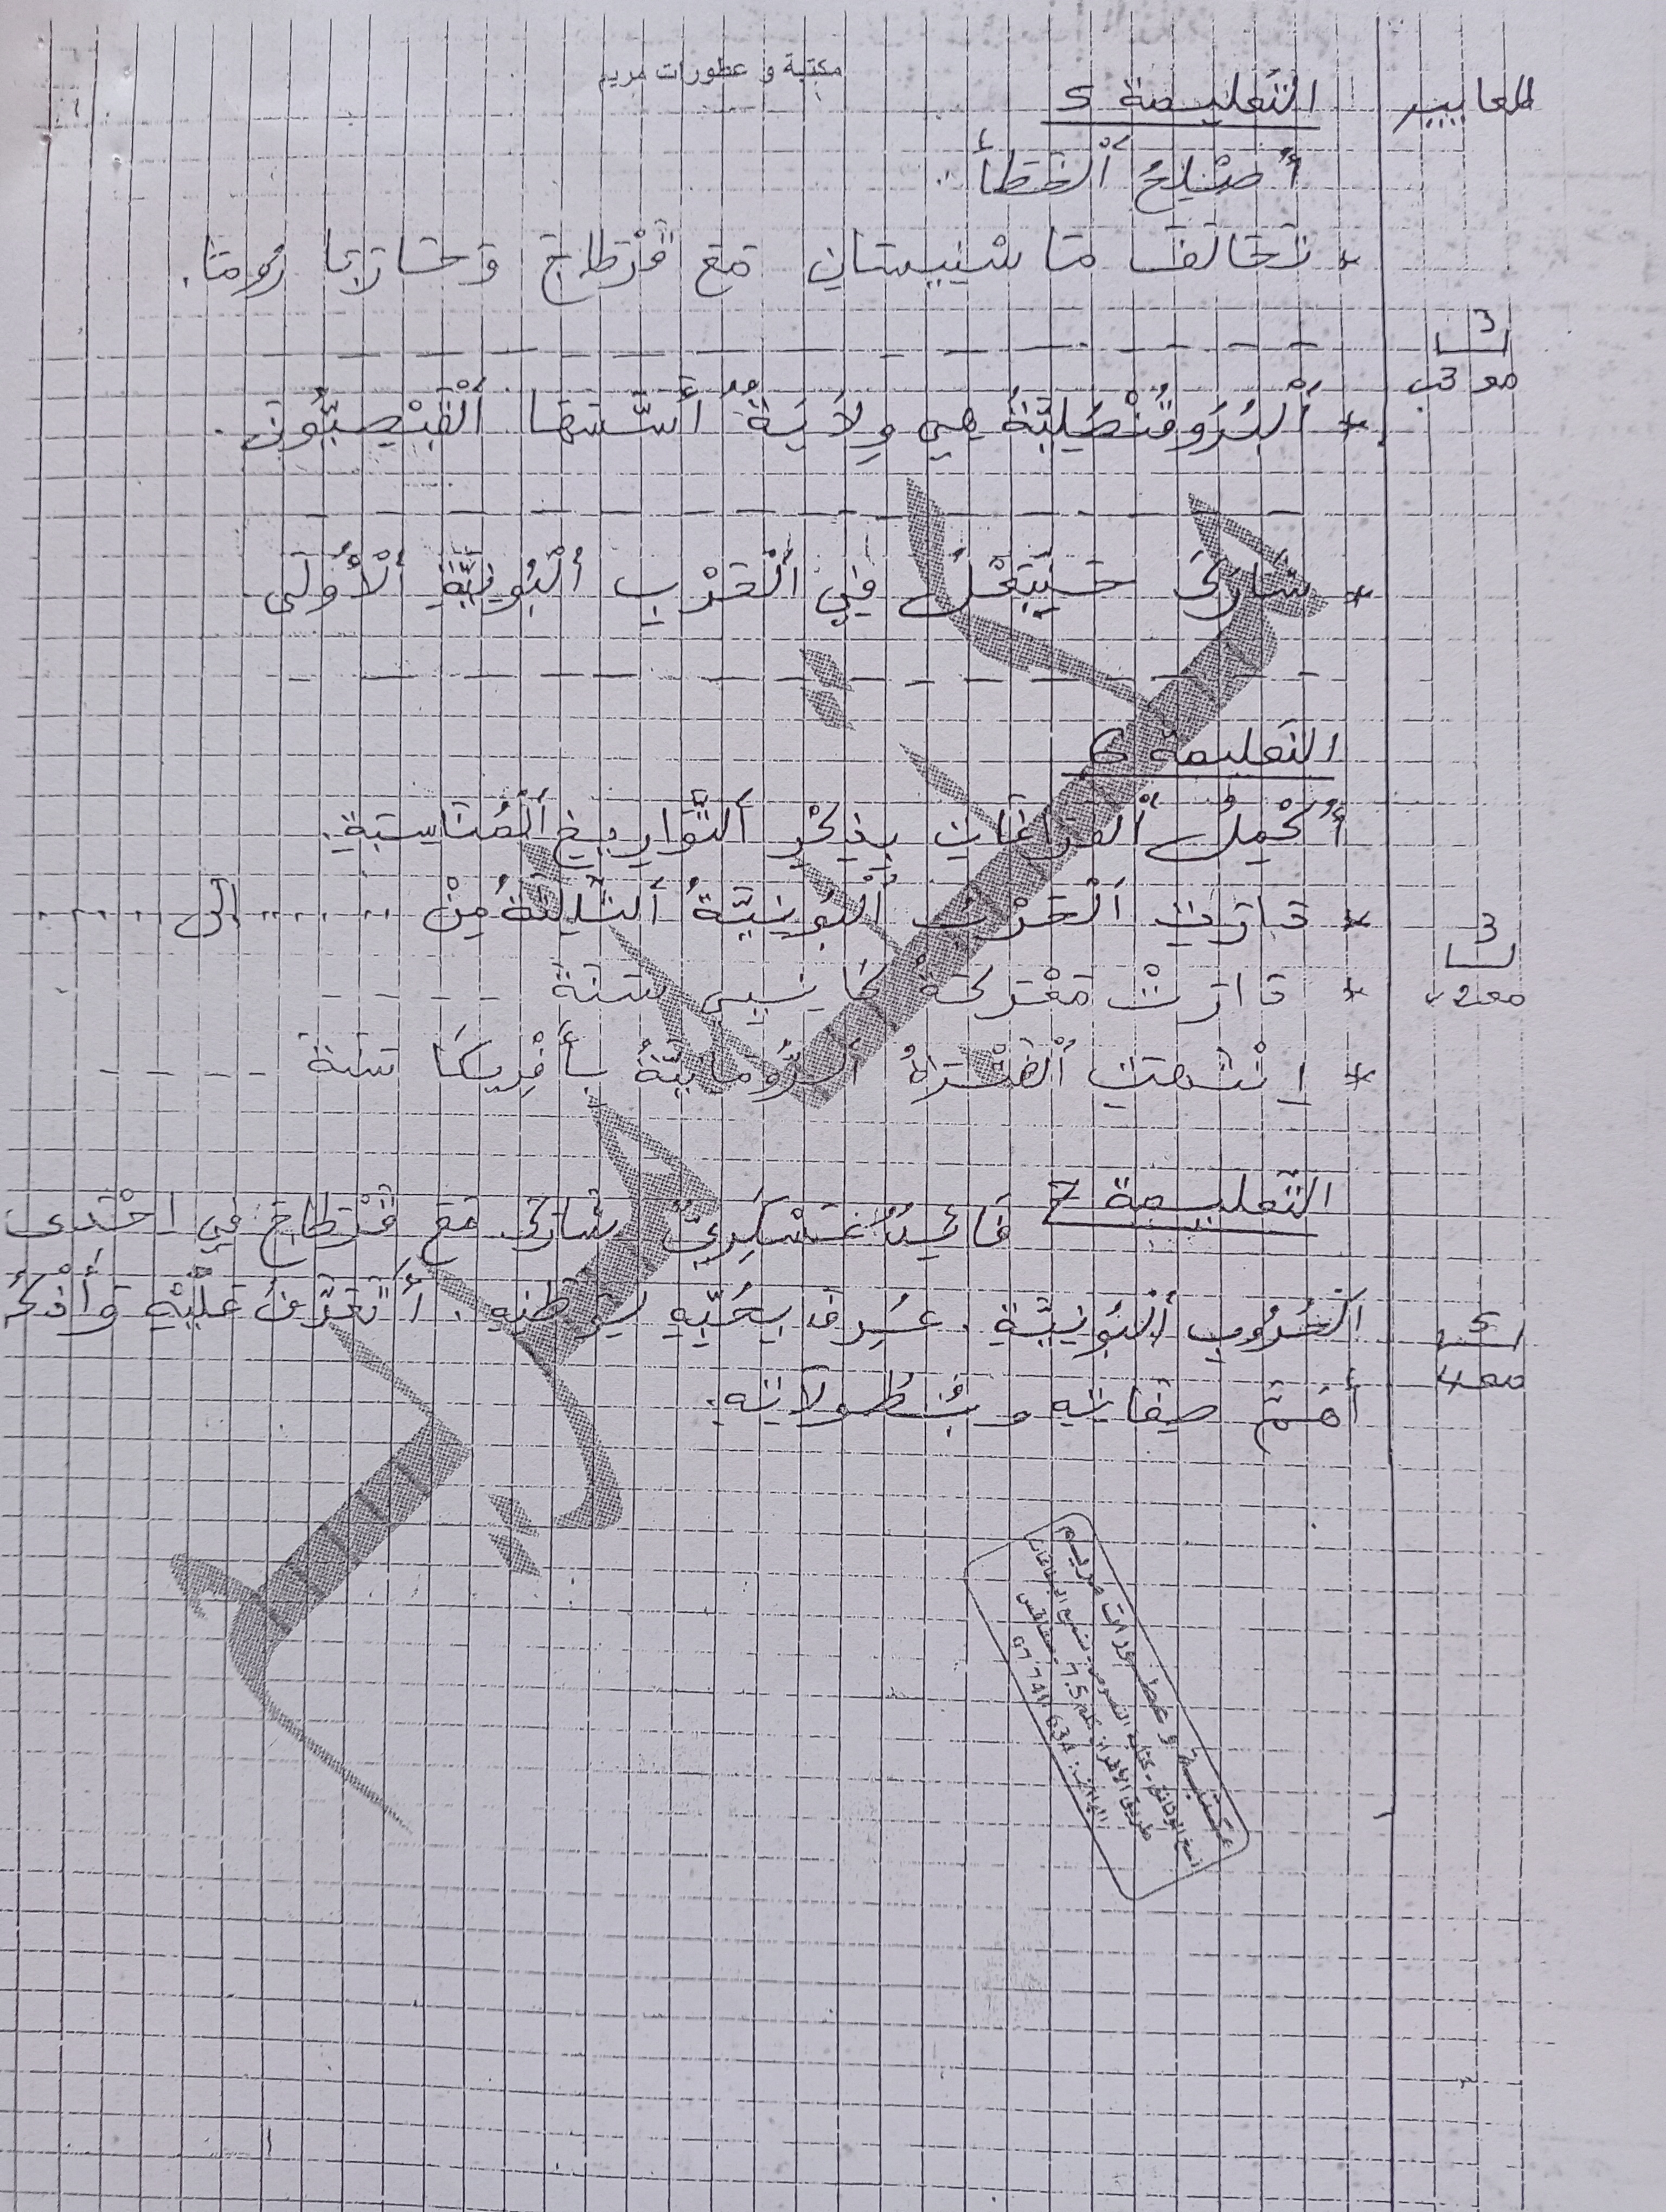 مكتبة و عطورات مريم
المعايير
التعليمة 5
أُصْلِحُ ٱلْخَطَأَ:
* تَحَالَفَ مَاسِينِيسَانِ مَعَ قَرْطَاجَ وَحَارَبَا رُومَا.
3
مع 3ب
* ٱلْبُرُوقُنْصُلِيَّةُ هِيَ وِلَايَةٌ أَسَّسَهَا ٱلْفِينِيقِيُّونَ.
* شَارَكَ حَنَّبَعْلُ فِي ٱلْحَرْبِ ٱلْبُونِيَّةِ ٱلْأُولَى
التعليمة 6
أُكْمِلُ ٱلْفَرَاغَاتِ بِذِكْرِ ٱلتَّوَارِيخِ ٱلْمُنَاسِبَةِ.
* دَارَتِ ٱلْحَرْبُ ٱلْبُونِيَّةُ ٱلثَّالِثَةُ مِنْ ...... إلى ......
3
مع 2ب
* دَارَتْ مَعْرَكَةُ كَانِيبِي سَنَةَ -----
* اِنْتَهَتِ ٱلْفَتْرَةُ ٱلرُّومَانِيَّةُ بِأَفْرِيكَا سَنَةَ -----
التعليمة 7 قَائِدٌ عَسْكَرِيٌّ شَارَكَ مَعَ قَرْطَاجَ فِي إِحْدَى
ٱلْحُرُوبِ ٱلْبُونِيَّةِ. عُرِفَ بِحُبِّهِ لِوَطَنِهِ. أَتَعَرَّفُ عَلَيْهِ وَأَذْكُرُ
5
مع 4
أَهَمَّ صِفَاتِهِ وَ بُطُولَاتِهِ.
مكتبة و عطورات مريم